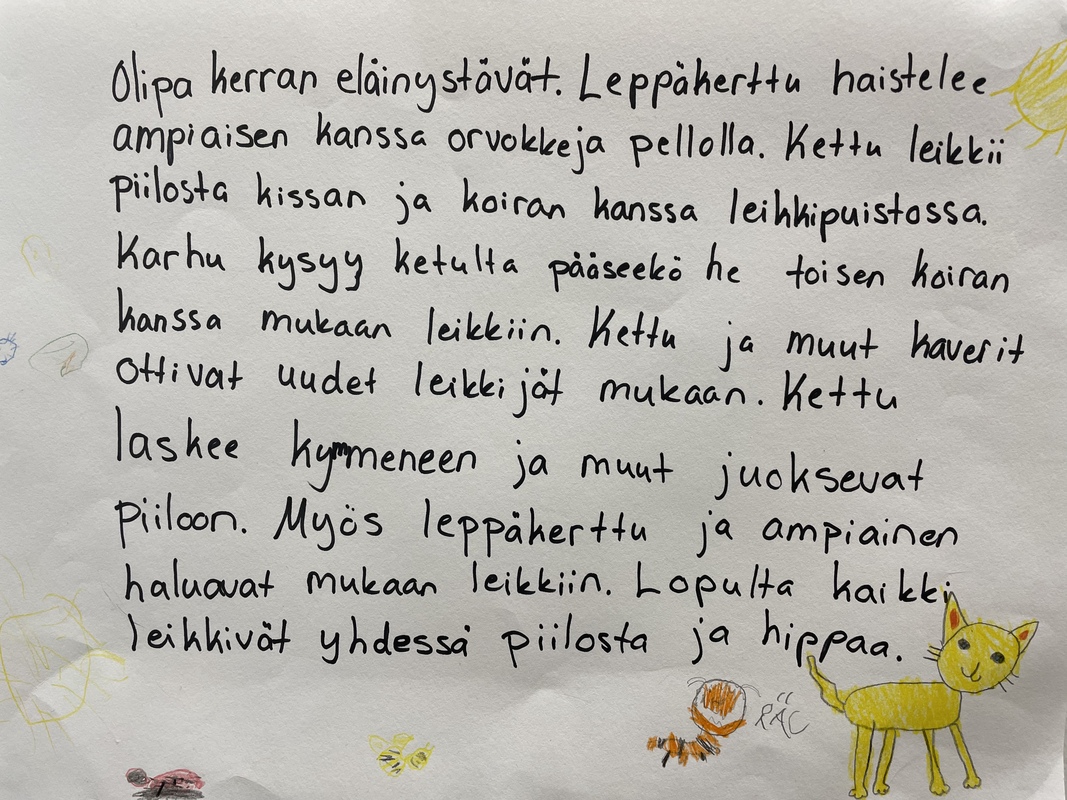 Olipa kerran eläinystävät. Leppäkerttu haistelee
ampiaisen kanssa orvokkeja pellolla. Kettu leikkii
piilosta kissan ja koiran kanssa leikkipuistossa.
Karhu kysyy ketulta pääseekö he toisen koiran
kanssa mukaan leikkiin. Kettu ja muut kaverit
ottivat uudet leikkijät mukaan. Kettu
laskee kymmeneen ja muut juoksevat
piiloon. Myös leppäkerttu ja ampiainen
haluavat mukaan leikkiin. Lopulta kaikki
leikkivät yhdessä piilosta ja hippaa.